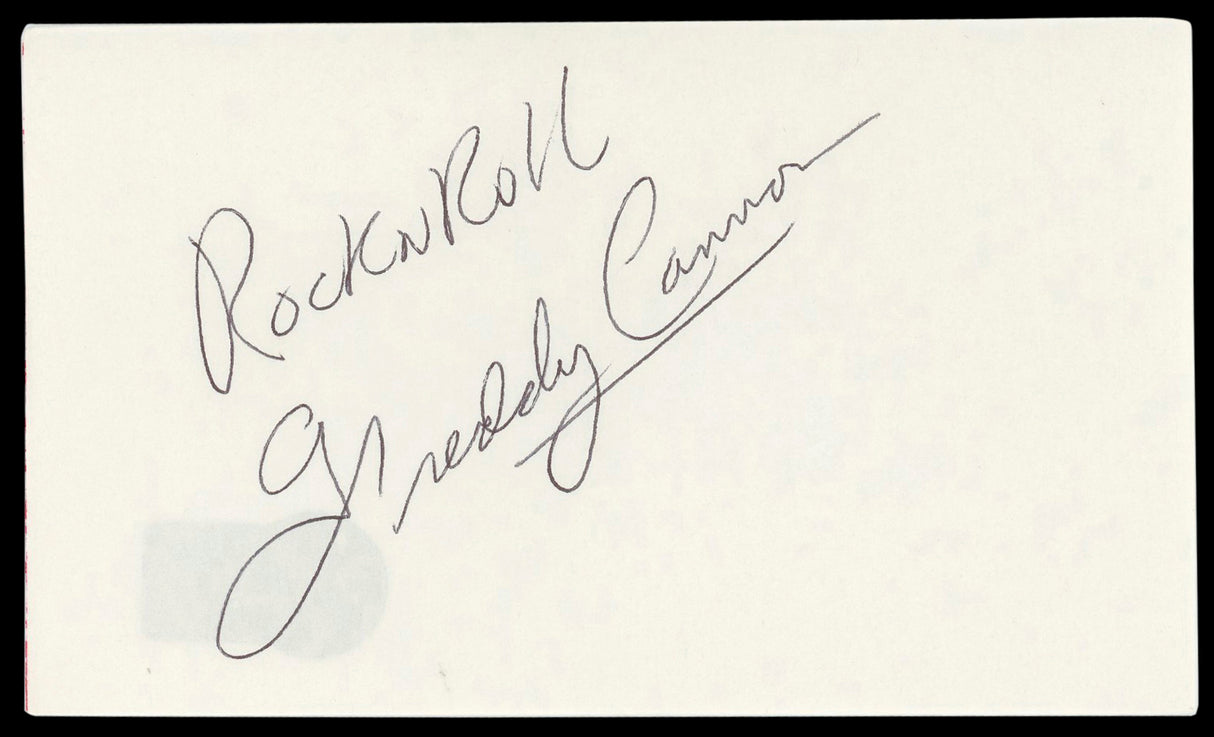 RockNRoll
Freddy Cannon